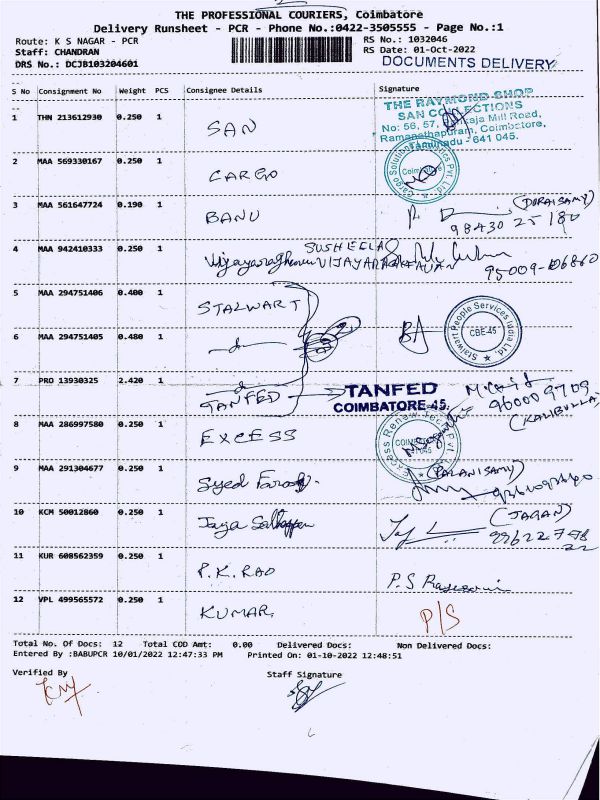 THE PROFESSIONAL COURIERS, Coimbatore
Delivery Runsheet - PCR - Phone No.:0422-3505555 - Page No.:1
Route: K S NAGAR - PCR
RS No.: 1032046
Staff: CHANDRAN
RS Date: 01-Oct-2022
DRS No.: DCJB103204601
DOCUMENTS DELIVERY
S No Consignment No Weight PCS Consignee Details Signature
1 THN 213612930 0.250 1 SAN
THE RAYMOND SHOP
SAN COLLECTIONS
No: 56, 57, Mill Road,
Ramanathapuram, Coimbatore,
Tamilnadu - 641 045.
2 MAA 569330167 0.250 1 CARGO
Cargo Solution Logistics Pvt. Ltd.
Coimbatore
3 MAA 561647724 0.190 1 BANU
(DORAISAMY)
98430 25180
4 MAA 942410333 0.250 1 Vijayaraghavan
SUSHEELA
VIJAYARAGHAVAN
95009-06860
5 MAA 294751406 0.400 1 STALWART
Stalwart People Services India Ltd.
CBE-45
6 MAA 294751405 0.480 1
7 PRO 13930325 2.420 1 TANFED
TANFED
COIMBATORE-45.
96000 9709
(KALIBULLA)
8 MAA 286997580 0.250 1 EXCESS
Excess Renew Tech Pvt.
9 MAA 291304677 0.250 1 Syed Farook
(PALANISAMY)
10 KCM 50012860 0.250 1 Jaya
(JAGAN)
99622 798
22
11 KUR 608562359 0.250 1 P.K. RAO
P.S
12 VPL 499565572 0.250 1 KUMAR
P/S
Total No. Of Docs: 12 Total COD Amt: 0.00 Delivered Docs: Non Delivered Docs:
Entered By :BABUPCR 10/01/2022 12:47:33 PM Printed On: 01-10-2022 12:48:51
Verified By
Staff Signature